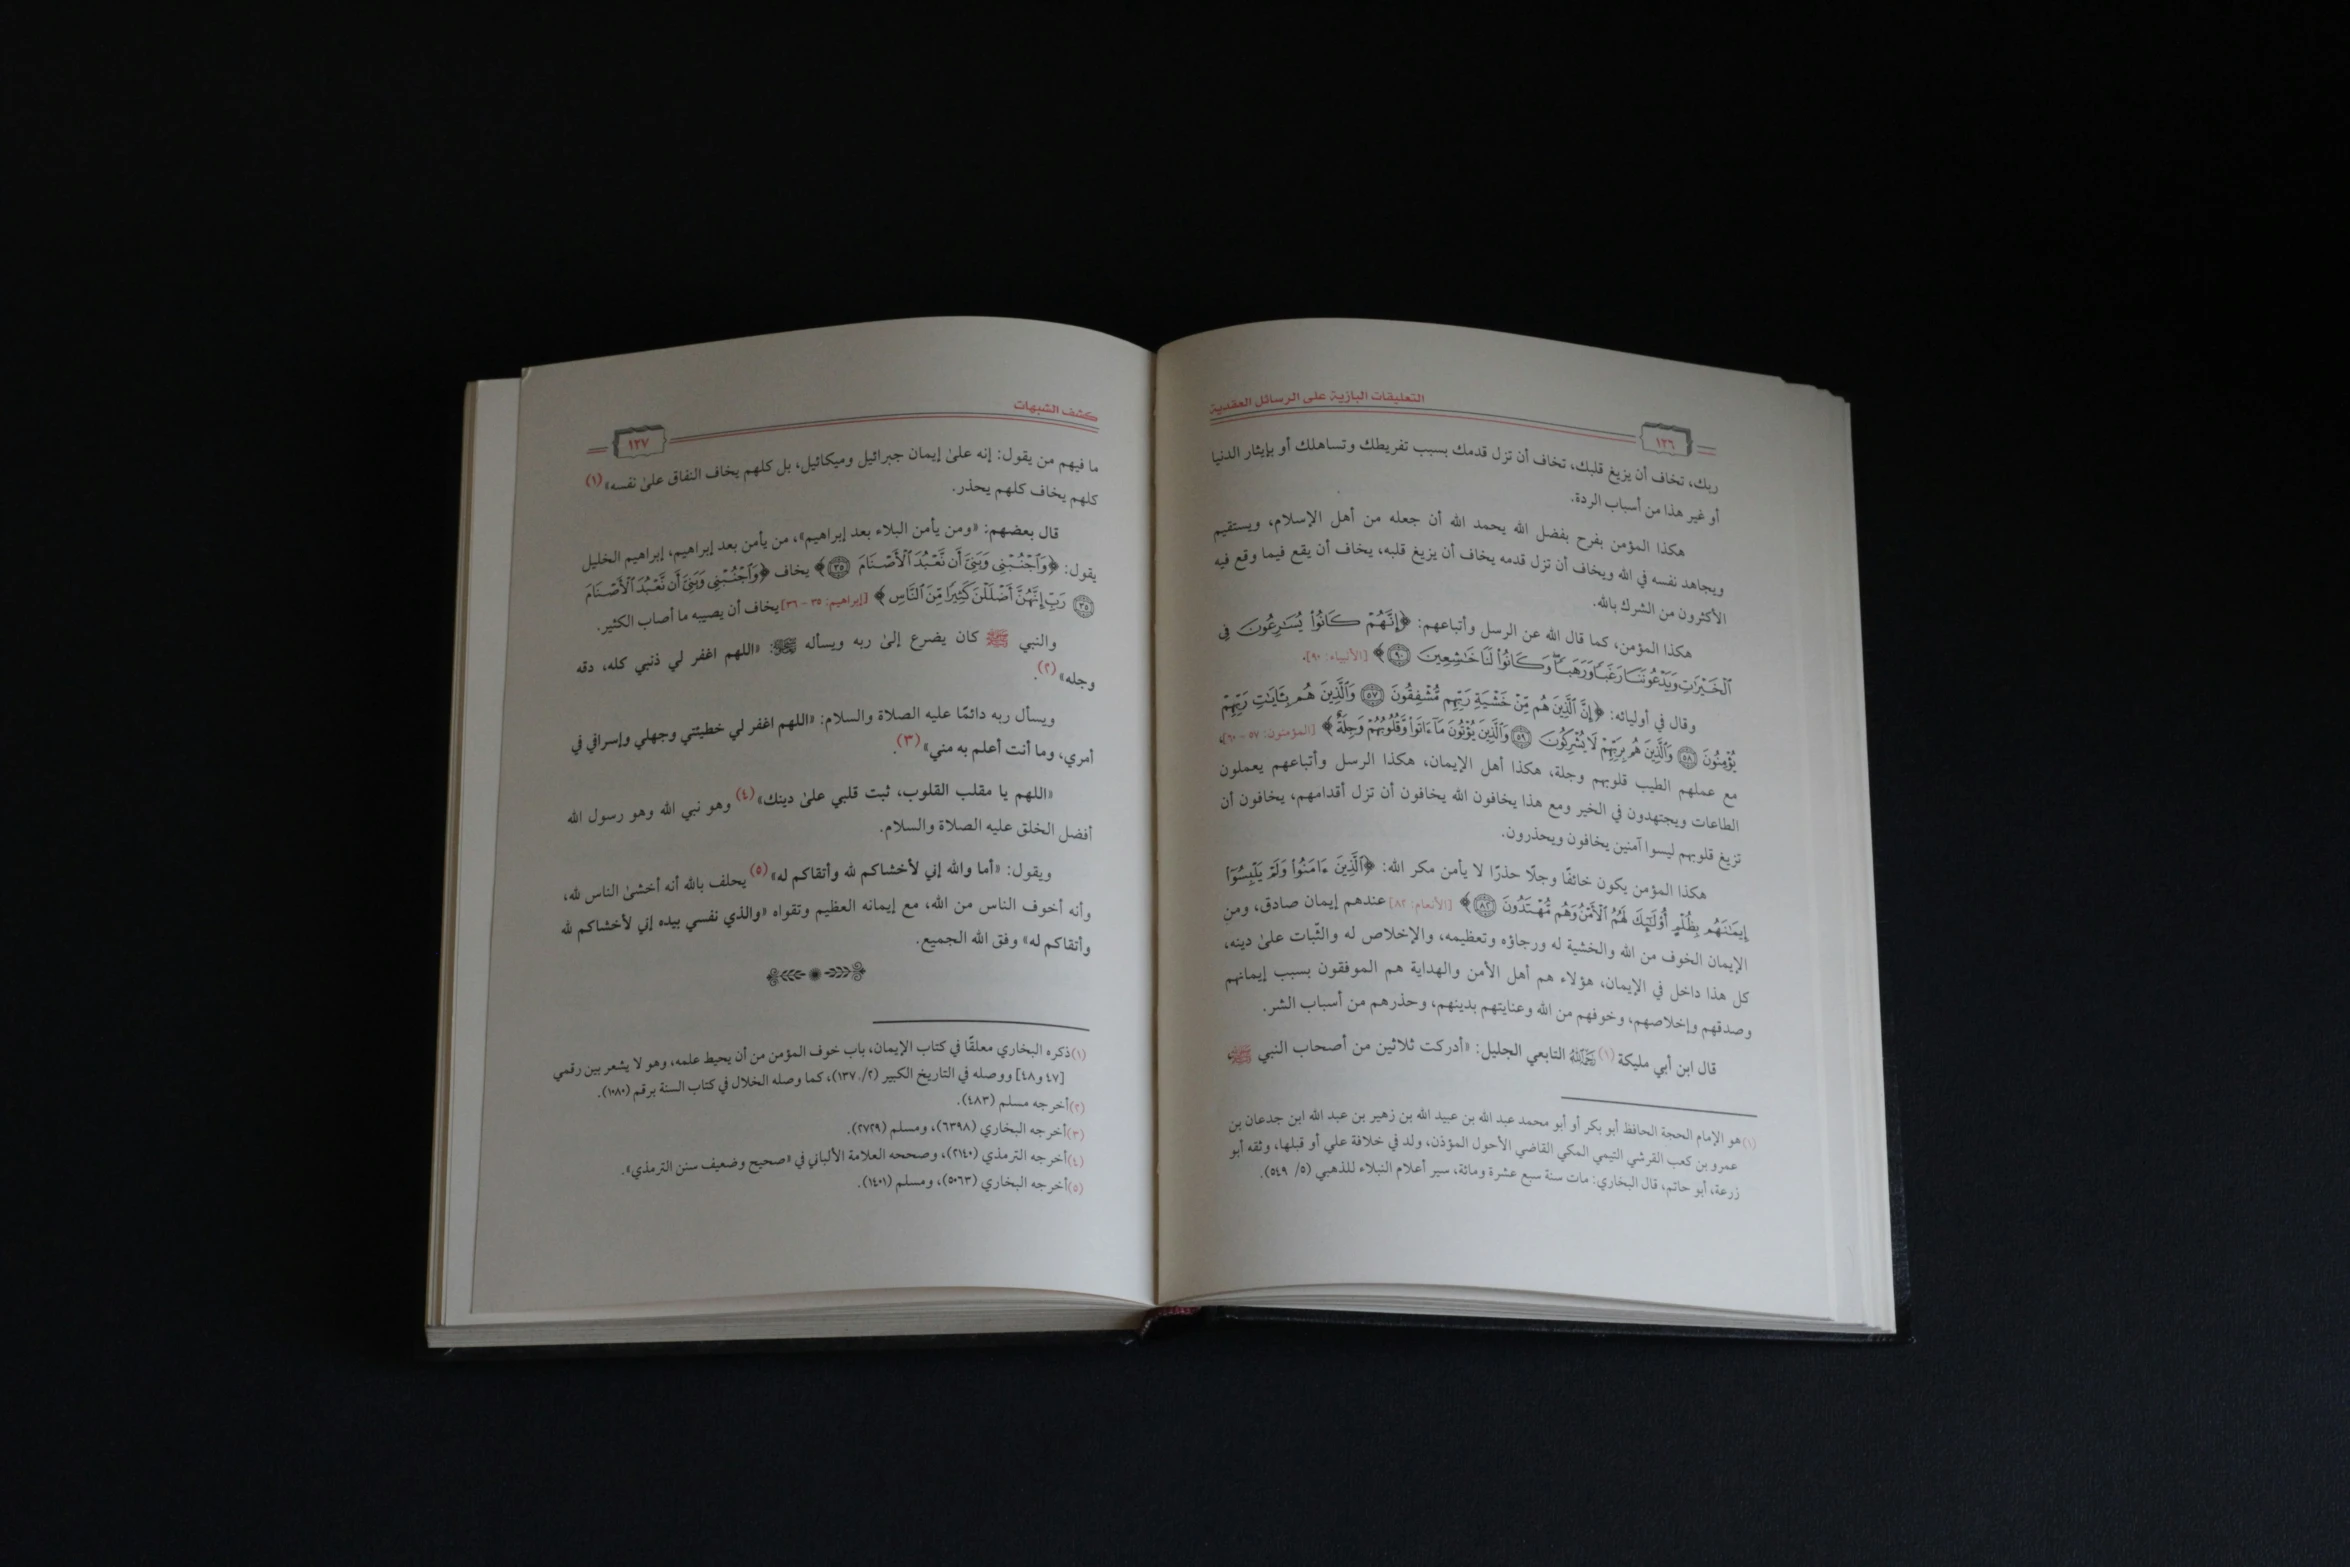 التعليقات البازية على الرسائل العقدية
١٢٦
ربك، تخاف أن يزيغ قلبك، تخاف أن تزل قدمك بسبب تفريطك وتساهلك أو بإيثار الدنيا
أو غير هذا من أسباب الردة.
هكذا المؤمن بفرح بفضل الله يحمد الله أن جعله من أهل الإسلام، ويستقيم
ويجاهد نفسه في الله ويخاف أن تزل قدمه يخاف أن يزيغ قلبه، يخاف أن يقع فيما وقع فيه
الأكثرون من الشرك بالله.
هكذا المؤمن، كما قال الله عن الرسل وأتباعهم: ﴿إِنَّهُمْ كَانُوا۟ يُسَـٰرِعُونَ فِى
ٱلْخَيْرَٰتِ وَيَدْعُونَنَا رَغَبًا وَرَهَبًا ۖ وَكَانُوا۟ لَنَا خَـٰشِعِينَ ٩٠﴾ [الأنبياء: ٩٠].
وقال في أوليائه: ﴿إِنَّ ٱلَّذِينَ هُم مِّنْ خَشْيَةِ رَبِّهِم مُّشْفِقُونَ ٥٧ وَٱلَّذِينَ هُم بِـَٔايَـٰتِ رَبِّهِمْ
يُؤْمِنُونَ ٥٨ وَٱلَّذِينَ هُم بِرَبِّهِمْ لَا يُشْرِكُونَ ٥٩ وَٱلَّذِينَ يُؤْتُونَ مَآ ءَاتَوا۟ وَّقُلُوبُهُمْ وَجِلَةٌ﴾ [المؤمنون: ٥٧ - ٦٠]،
مع عملهم الطيب قلوبهم وجلة، هكذا أهل الإيمان، هكذا الرسل وأتباعهم يعملون
الطاعات ويجتهدون في الخير ومع هذا يخافون الله يخافون أن تزل أقدامهم، يخافون أن
تزيغ قلوبهم ليسوا آمنين يخافون ويحذرون.
هكذا المؤمن يكون خائفًا وجلًا حذرًا لا يأمن مكر الله: ﴿ٱلَّذِينَ ءَامَنُوا۟ وَلَمْ يَلْبِسُوٓا۟
إِيمَـٰنَهُم بِظُلْمٍ أُو۟لَـٰٓئِكَ لَهُمُ ٱلْأَمْنُ وَهُم مُّهْتَدُونَ ٨٢﴾ [الأنعام: ٨٢] عندهم إيمان صادق، ومن
الإيمان الخوف من الله والخشية له ورجاؤه وتعظيمه، والإخلاص له والثّبات علىٰ دينه،
كل هذا داخل في الإيمان، هؤلاء هم أهل الأمن والهداية هم الموفقون بسبب إيمانهم
وصدقهم وإخلاصهم، وخوفهم من الله وعنايتهم بدينهم، وحذرهم من أسباب الشر.
قال ابن أبي مليكة (١) رحمه الله التابعي الجليل: «أدركت ثلاثين من أصحاب النبي ﷺ
(١) هو الإمام الحجة الحافظ أبو بكر أو أبو محمد عبد الله بن عبيد الله بن زهير بن عبد الله ابن جدعان بن
عمرو بن كعب القرشي التيمي المكي القاضي الأحول المؤذن، ولد في خلافة علي أو قبلها، وثقه أبو
زرعة، أبو حاتم، قال البخاري: مات سنة سبع عشرة ومائة، سير أعلام النبلاء للذهبي (٥/ ٥٤٩).
كشف الشبهات
١٢٧
ما فيهم من يقول: إنه علىٰ إيمان جبرائيل وميكائيل، بل كلهم يخاف النفاق علىٰ نفسه» (١)
كلهم يخاف كلهم يحذر.
قال بعضهم: «ومن يأمن البلاء بعد إبراهيم»، من يأمن بعد إبراهيم، إبراهيم الخليل
يقول: ﴿وَٱجْنُبْنِى وَبَنِىَّ أَن نَّعْبُدَ ٱلْأَصْنَامَ ٣٥﴾ يخاف ﴿وَٱجْنُبْنِى وَبَنِىَّ أَن نَّعْبُدَ ٱلْأَصْنَامَ
٣٥ رَبِّ إِنَّهُنَّ أَضْلَلْنَ كَثِيرًا مِّنَ ٱلنَّاسِ﴾ [إبراهيم: ٣٥ - ٣٦] يخاف أن يصيبه ما أصاب الكثير.
والنبي ﷺ كان يضرع إلىٰ ربه ويسأله ﷺ: «اللهم اغفر لي ذنبي كله، دقه
وجله» (٢).
ويسأل ربه دائمًا عليه الصلاة والسلام: «اللهم اغفر لي خطيئتي وجهلي وإسرافي في
أمري، وما أنت أعلم به مني» (٣).
«اللهم يا مقلب القلوب، ثبت قلبي علىٰ دينك» (٤) وهو نبي الله وهو رسول الله
أفضل الخلق عليه الصلاة والسلام.
ويقول: «أما والله إني لأخشاكم لله وأتقاكم له» (٥) يحلف بالله أنه أخشىٰ الناس لله،
وأنه أخوف الناس من الله، مع إيمانه العظيم وتقواه «والذي نفسي بيده إني لأخشاكم لله
وأتقاكم له» وفق الله الجميع.
(١) ذكره البخاري معلقًا في كتاب الإيمان، باب خوف المؤمن من أن يحيط علمه، وهو لا يشعر بين رقمي
[٤٧ و٤٨] ووصله في التاريخ الكبير (٢/. ١٣٧)، كما وصله الخلال في كتاب السنة برقم (١٠٨٠).
(٢) أخرجه مسلم (٤٨٣).
(٣) أخرجه البخاري (٦٣٩٨)، ومسلم (٢٧٢٩).
(٤) أخرجه الترمذي (٢١٤٠)، وصححه العلامة الألباني في «صحيح وضعيف سنن الترمذي».
(٥) أخرجه البخاري (٥٠٦٣)، ومسلم (١٤٠١).